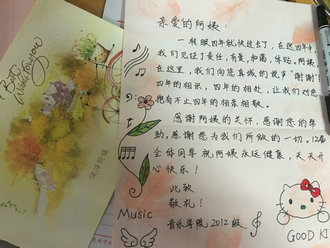 Best Wishes For you
深深祝福
亲爱的阿姨:
一转眼四年就快过去了,在这四年中
我们见证了责任,有爱,和蔼,体贴,阿姨
在这里,我们向您真诚的说声"谢谢!"
四年的相识,四年的相处,让我们对您
抱有不止四年的相亲相敬。
感谢阿姨的关怀,感谢您的帮
助,感谢您为我们所做的一切。12届
全体同学祝阿姨永远健康,天天开
心快乐!
此致
敬礼!
音乐学院2012级
Music
GOOD KI